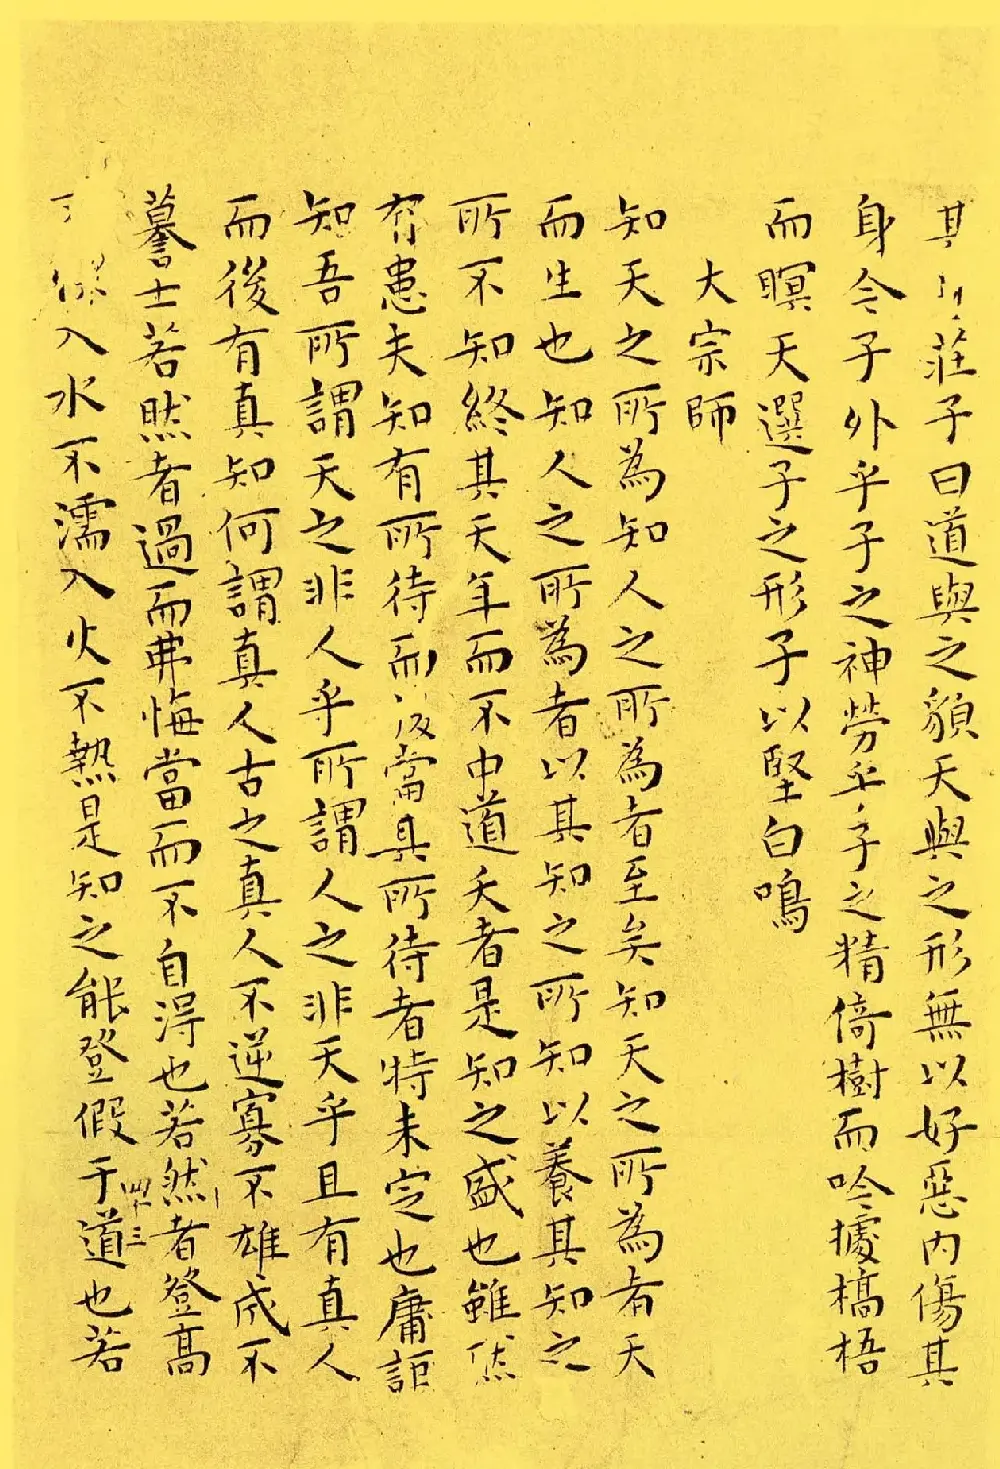 其 莊子曰道與之貌天與之形無以好惡內傷其
身今子外乎子之神勞乎子之精倚樹而吟據槁梧
而瞑天選子之形子以堅白鳴
大宗師
知天之所為知人之所為者至矣知天之所為者天
而生也知人之所為者以其知之所知以養其知之
所不知終其天年而不中道夭者是知之盛也雖然
有患夫知有所待而後當其所待者特未定也庸詎
知吾所謂天之非人乎所謂人之非天乎且有真人
而後有真知何謂真人古之真人不逆寡不雄成不
謩士若然者過而弗悔當而不自得也若然者登高
不 慄入水不濡入火不熱是知之能登假于道也若